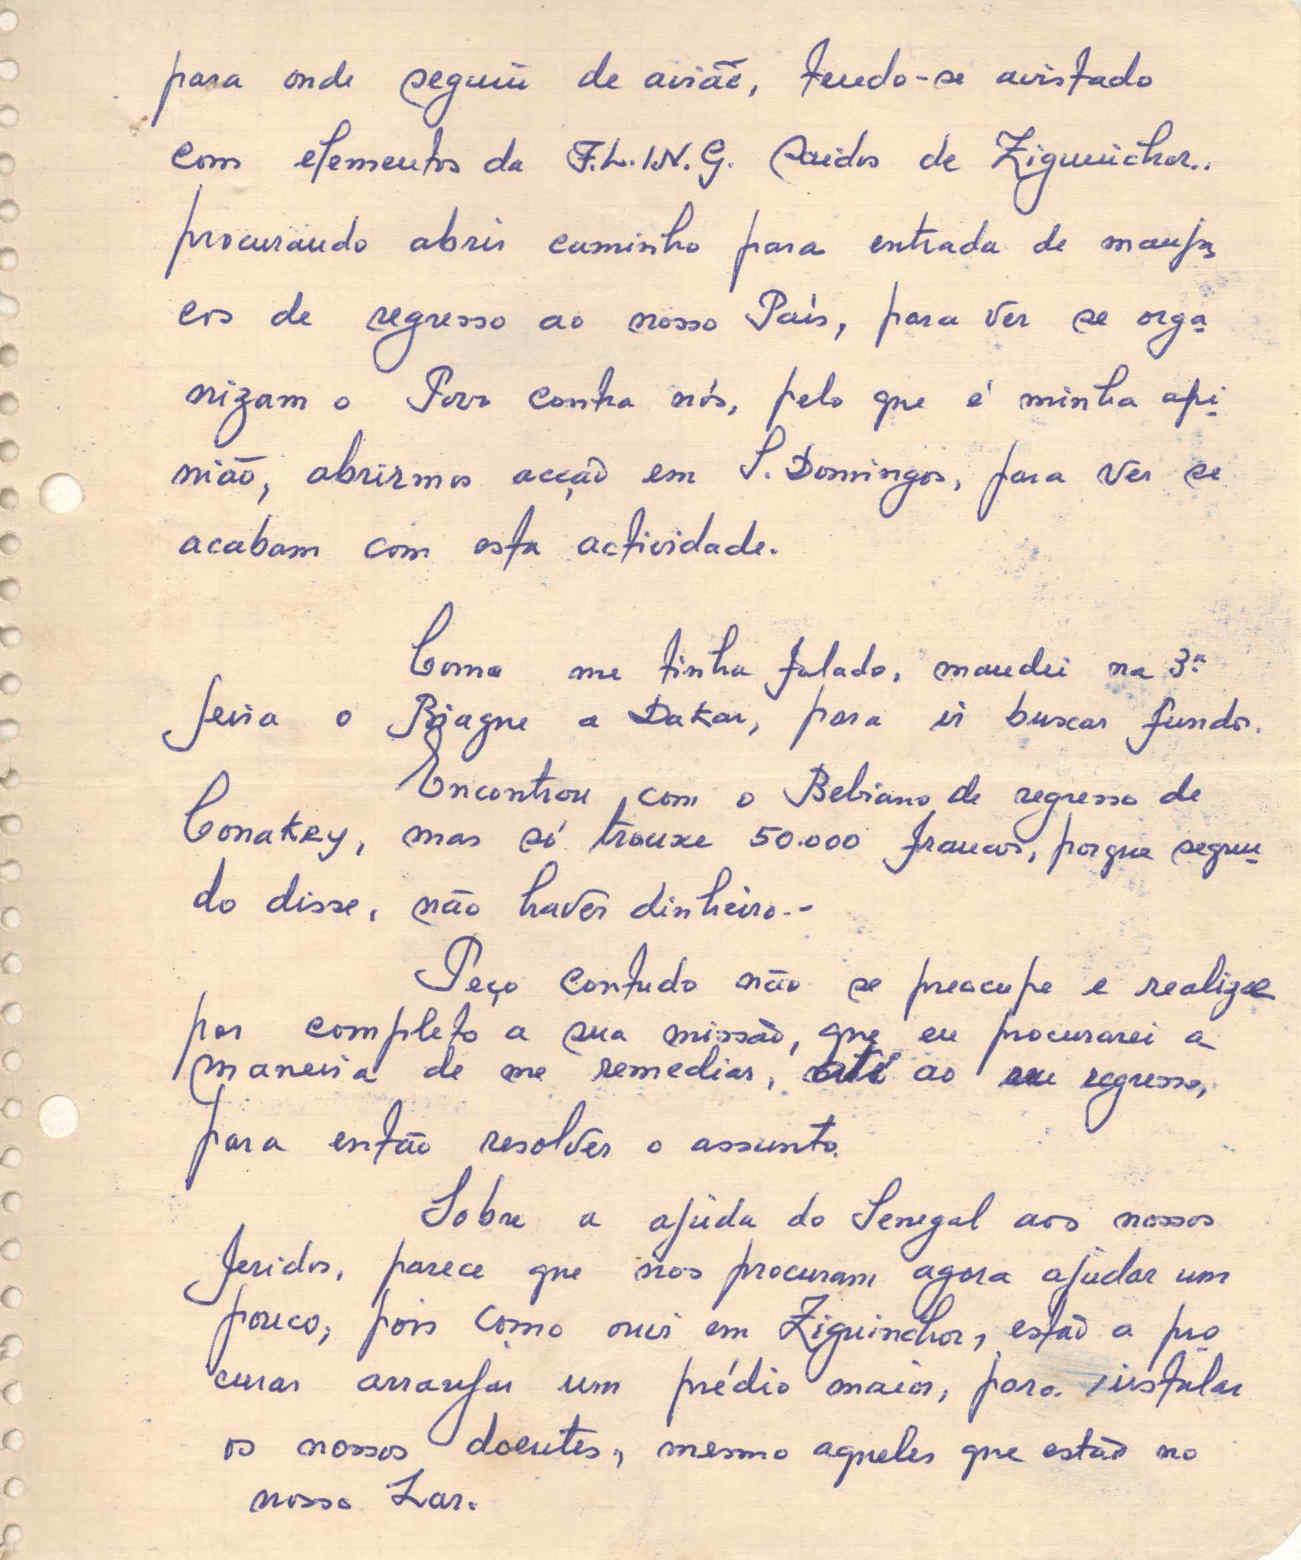 para onde seguiu de avião, tendo-se avistado
com elementos da F.L.I.N.G. saidos de Ziguinchor..
procurando abrir caminho para entrada de manja
cos de regresso ao nosso País, para ver se orga
nizam o Povo contra nós, pelo que é minha opi
nião, abrirmos acção em S. Domingos, para ver se
acabam com esta actividade.
Como me tinha falado, mandei na 3ª
feira o Biague a Dakar, para ir buscar fundos.
Encontrou com o Bebiano de regresso de
Conakry, mas só trouxe 50.000 francos, porque segun
do disse, não haver dinheiro.-
Peço contudo não se preocupe e realize
por completo a sua missão, que eu procurarei a
maneira de me remediar, até ao seu regresso,
para então resolver o assunto.
Sobre a ajúda do Senegal aos nossos
feridos, parece que nos procuram agora ajudar um
pouco, pois como ouvi em Ziguinchor, estão a pro
curar arranjar um prédio maior, para instalar
os nossos doentes, mesmo aqueles que estão no
nosso Lar.